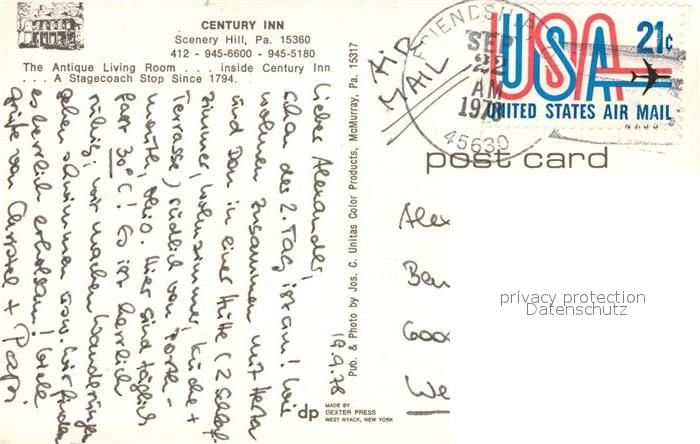 CENTURY INN
Scenery Hill, Pa. 15360
412 - 945-6600 - 945-5180
The Antique Living Room . . . inside Century Inn
. . . A Stagecoach Stop Since 1794.
19.9.78
Lieber Alexander,
schon der 2. Tag ist um! Wir
wohnen zusammen mit Herta
und Don in einer Hütte (2 Schlaf-
zimmer, Wohnzimmer, Küche +
Terrasse) südlich von Ports-
mouth, Ohio. Hier sind täglich
fast 30°C! Es ist herrlich
ruhig, wir machen Wanderungen
gehen schwimmen usw. Wir finden
es herrlich erholsam! Viele
Grüße von Christel + Papi
Pub. & Photo by Jos. C. Unitas Color Products, McMurray, Pa. 15317
dp
MADE BY
DEXTER PRESS
WEST NYACK, NEW YORK
AIR
MAIL
FRIENDSHIP
SEP
22
AM
1978
45630
USA 21c
UNITED STATES AIR MAIL
post card
Alex
Ben
6000
We
privacy protection
Datenschutz